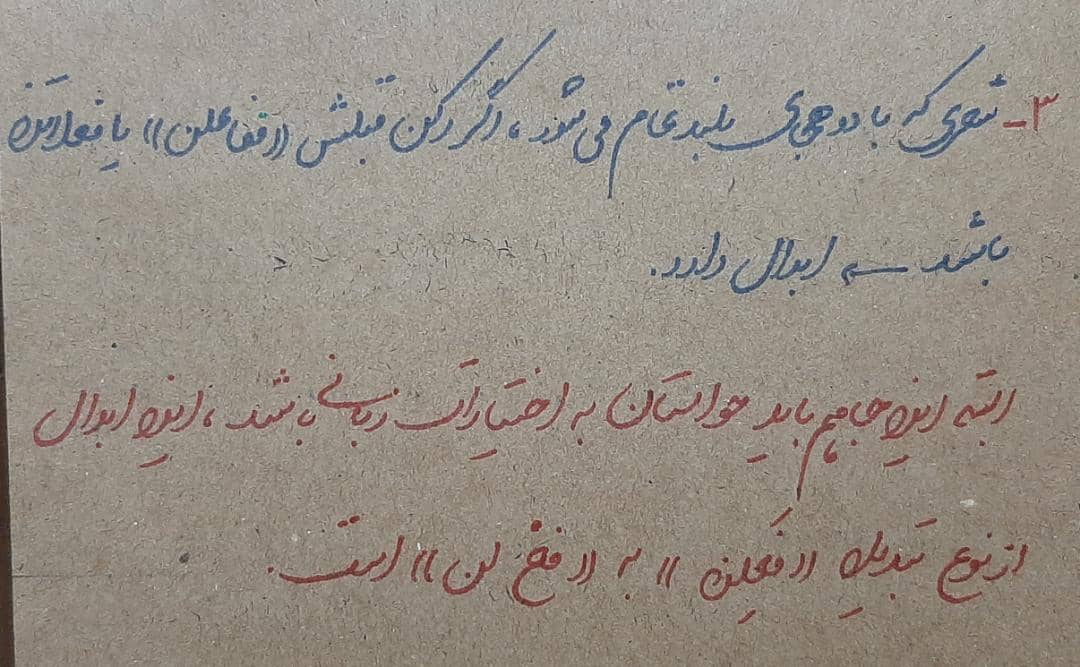 ۳- شعری که با دو هجای بلند تمام می‌شود، اگر رکن قبلش «مفاعلن» یا فعلاتن
باشد ← ابدال دارد.
البته این‌جا هم باید حواستان به اختیارات زبانی باشد، این ابدال
از نوع تبدیل «فَعِلن» به «فع لن» است.